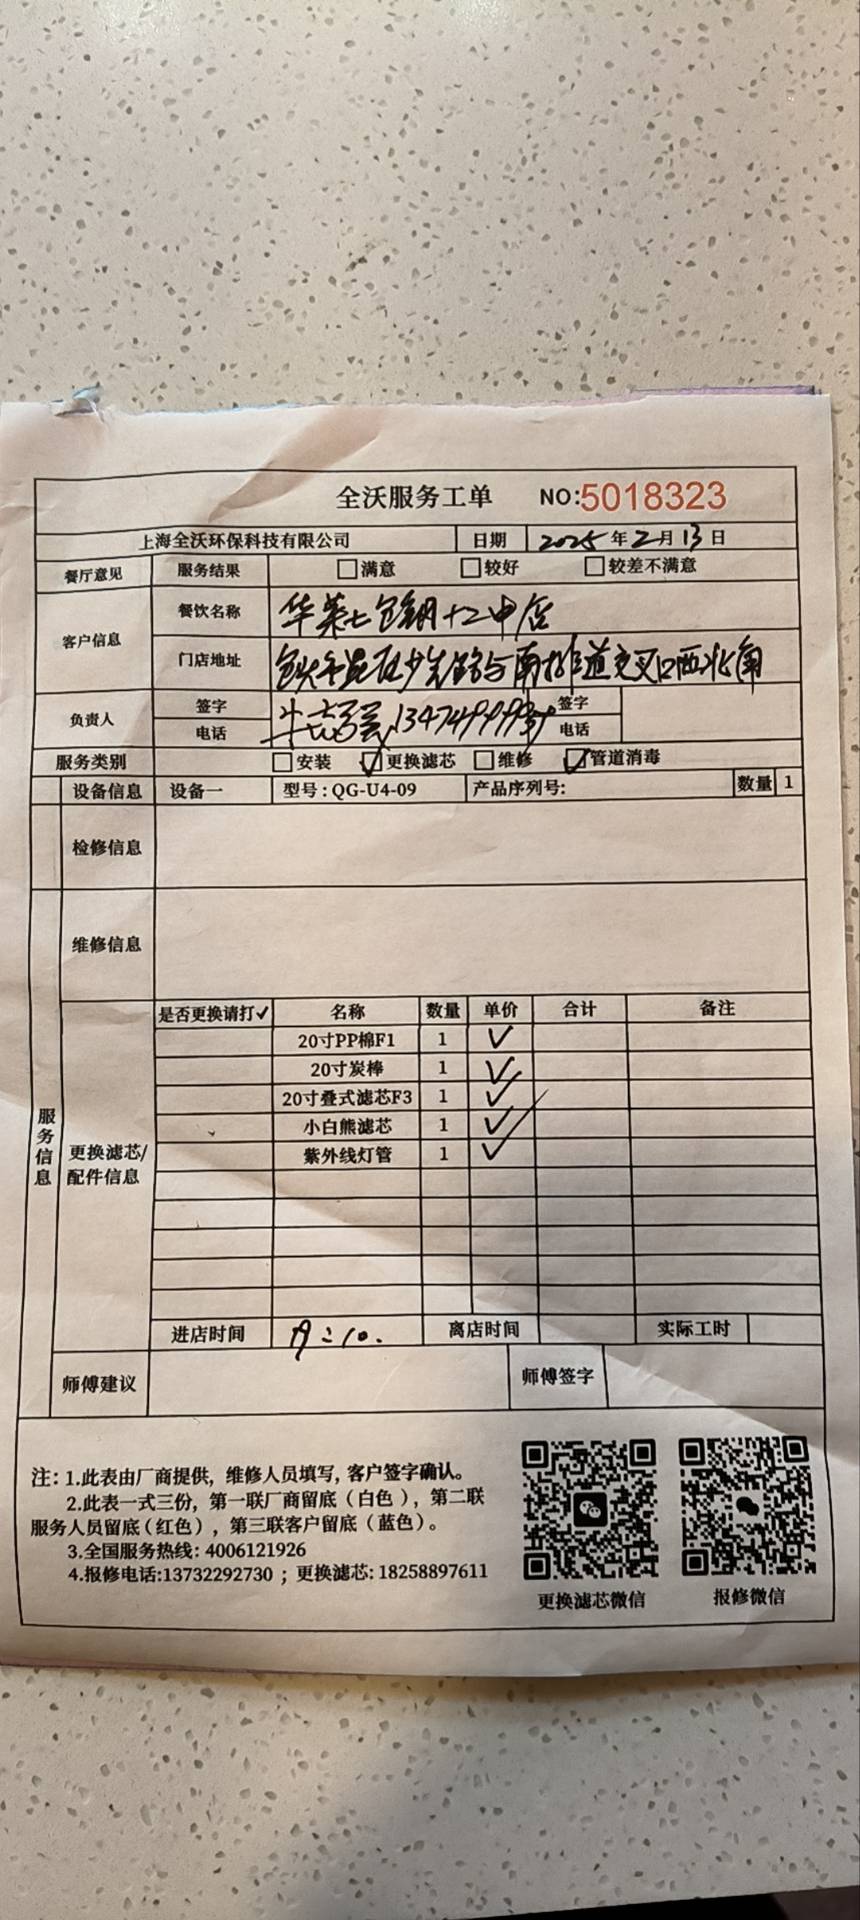 全沃服务工单 NO:5018323
上海全沃环保科技有限公司 日期 2025年2月13日
餐厅意见 服务结果 满意 较好 较差不满意
客户信息 餐饮名称 华莱士包钢十二中店
门店地址 包头市昆区少先路与南排道交叉口西北角
负责人 签字 签字
电话 电话
服务类别 安装 更换滤芯 维修 管道消毒
设备信息 设备一 型号:QG-U4-09 产品序列号: 数量 1
检修信息
维修信息
服务信息
更换滤芯/配件信息
是否更换请打✓ 名称 数量 单价 合计 备注
20寸PP棉F1 1 ✓
20寸炭棒 1 ✓
20寸叠式滤芯F3 1 ✓
小白熊滤芯 1 ✓
紫外线灯管 1 ✓
进店时间 离店时间 实际工时
师傅建议 师傅签字
注:1.此表由厂商提供,维修人员填写,客户签字确认。
2.此表一式三份,第一联厂商留底(白色),第二联
服务人员留底(红色),第三联客户留底(蓝色)。
3.全国服务热线:4006121926
4.报修电话:13732292730;更换滤芯:18258897611
更换滤芯微信 报修微信